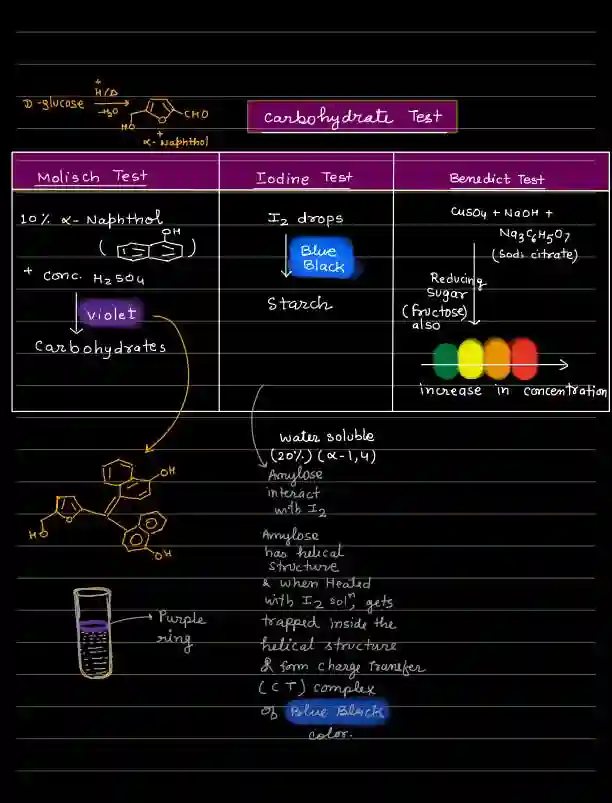 D-glucose
H⁺/Δ
-H₂O
CHO
HO
+
α-Naphthol
Carbohydrate Test
Molisch Test
10% α-Naphthol
( OH )
+ Conc. H₂SO₄
violet
Carbohydrates
Iodine Test
I₂ drops
Blue
Black
Starch
Benedict Test
CuSO₄ + NaOH +
Na₃C₆H₅O₇
(Sodi citrate)
Reducing
Sugar
(fructose)
also
increase in concentration
OH
O
HO
OH
Purple
ring
water soluble
(20%) (α-1,4)
Amylose
interact
with I₂
Amylose
has helical
structure
& when Heated
with I₂ solⁿ, gets
trapped inside the
helical structure
& form charge Transfer
(CT) complex
of Blue Black
color.